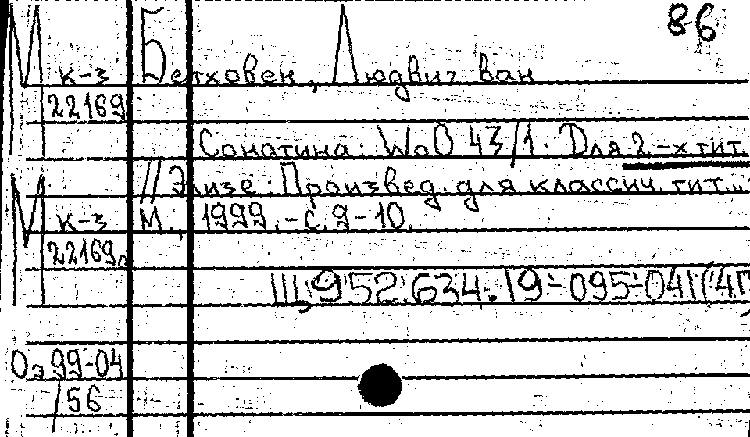 86
М к-з Бетховен, Людвиг ван
22169
Сонатина: WoO 43/1. Для 2-х гит.
// Элизе: Произвед. для классич. гит...
М к-з М., 1999.-с.9-10.
22169
Щ,952.634.19-095-041(4Г
Оэ 99-04
/56